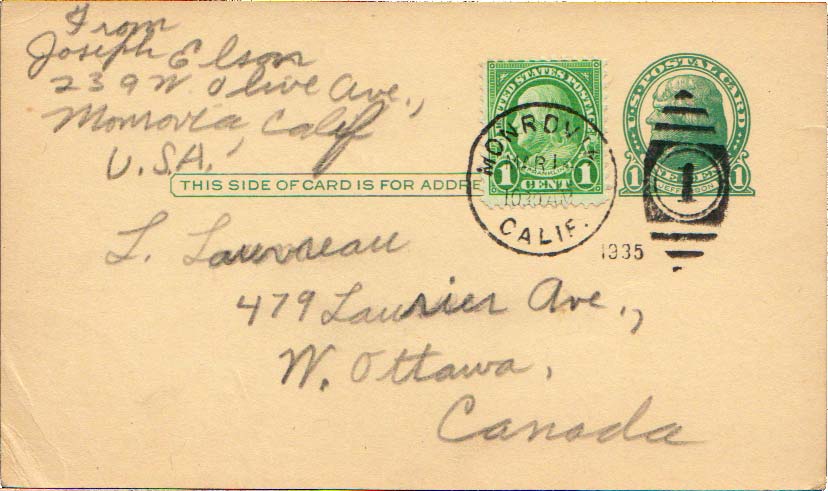 From
Joseph Elson
239 W. Olive Ave.,
Monrovia, Calif
U.S.A.
UNITED STATES POSTAGE
1 CENT 1
U.S. POSTAL CARD
1 JEFFERSON 1
MONROVIA
CALIF.
1935
1
THIS SIDE OF CARD IS FOR ADDRE
L.
479 Laurier Ave.,
W. Ottawa,
Canada